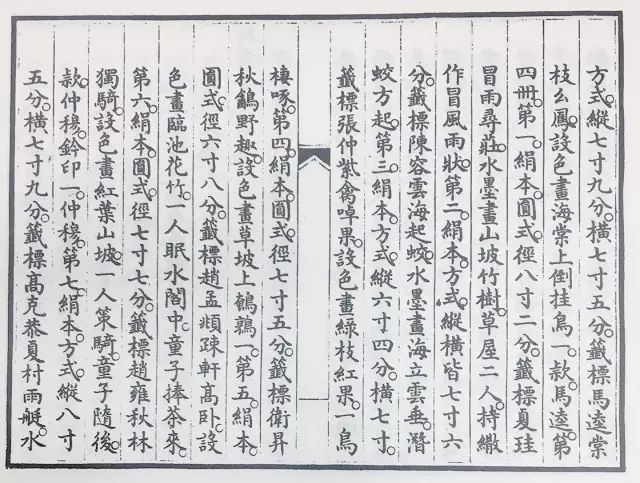 方式。縱七寸九分。橫七寸五分。籤標馬逵棠
枝幺鳳。設色畫海棠上倒挂鳥一。款馬逵。第
四冊。第一。絹本。圓式。徑八寸二分。籤標夏珪
冒雨尋莊。水墨畫山坡竹樹。草屋二。人持繖
作冒風雨狀。第二。絹本。方式。縱橫皆七寸六
分。籤標陳容雲海起蛟。水墨畫海立雲垂。潛
蛟方起。第三。絹本。方式。縱六寸四分。橫七寸。
籤標張仲紫禽啅果。設色畫綠枝紅果。一鳥
棲啄。第四。絹本。圓式。徑七寸五分。籤標衛昇
秋野趣。設色畫草坡上鵪鶉一。第五。絹本。
圓式。徑六寸八分。籤標趙孟頫疎軒高臥。設
色畫臨池花竹。一人眠水閣中。童子捧茶來。
第六。絹本。圓式。徑七寸七分。籤標趙雍秋林
獨騎。設色畫紅葉山坡。一人策騎。童子隨後。
款仲穆。鈐印一。仲穆。第七。絹本。方式。縱八寸
五分。橫七寸九分。籤標高克恭夏村雨艇。水